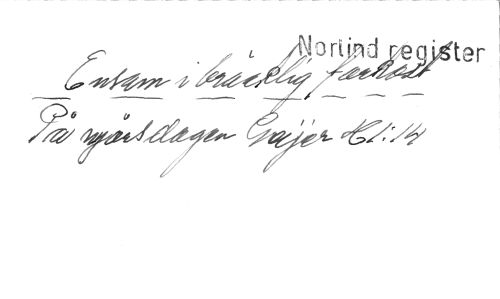 Nortind register
Ensam i bräcklig farkost
På nyårsdagen Geijer H 1:14